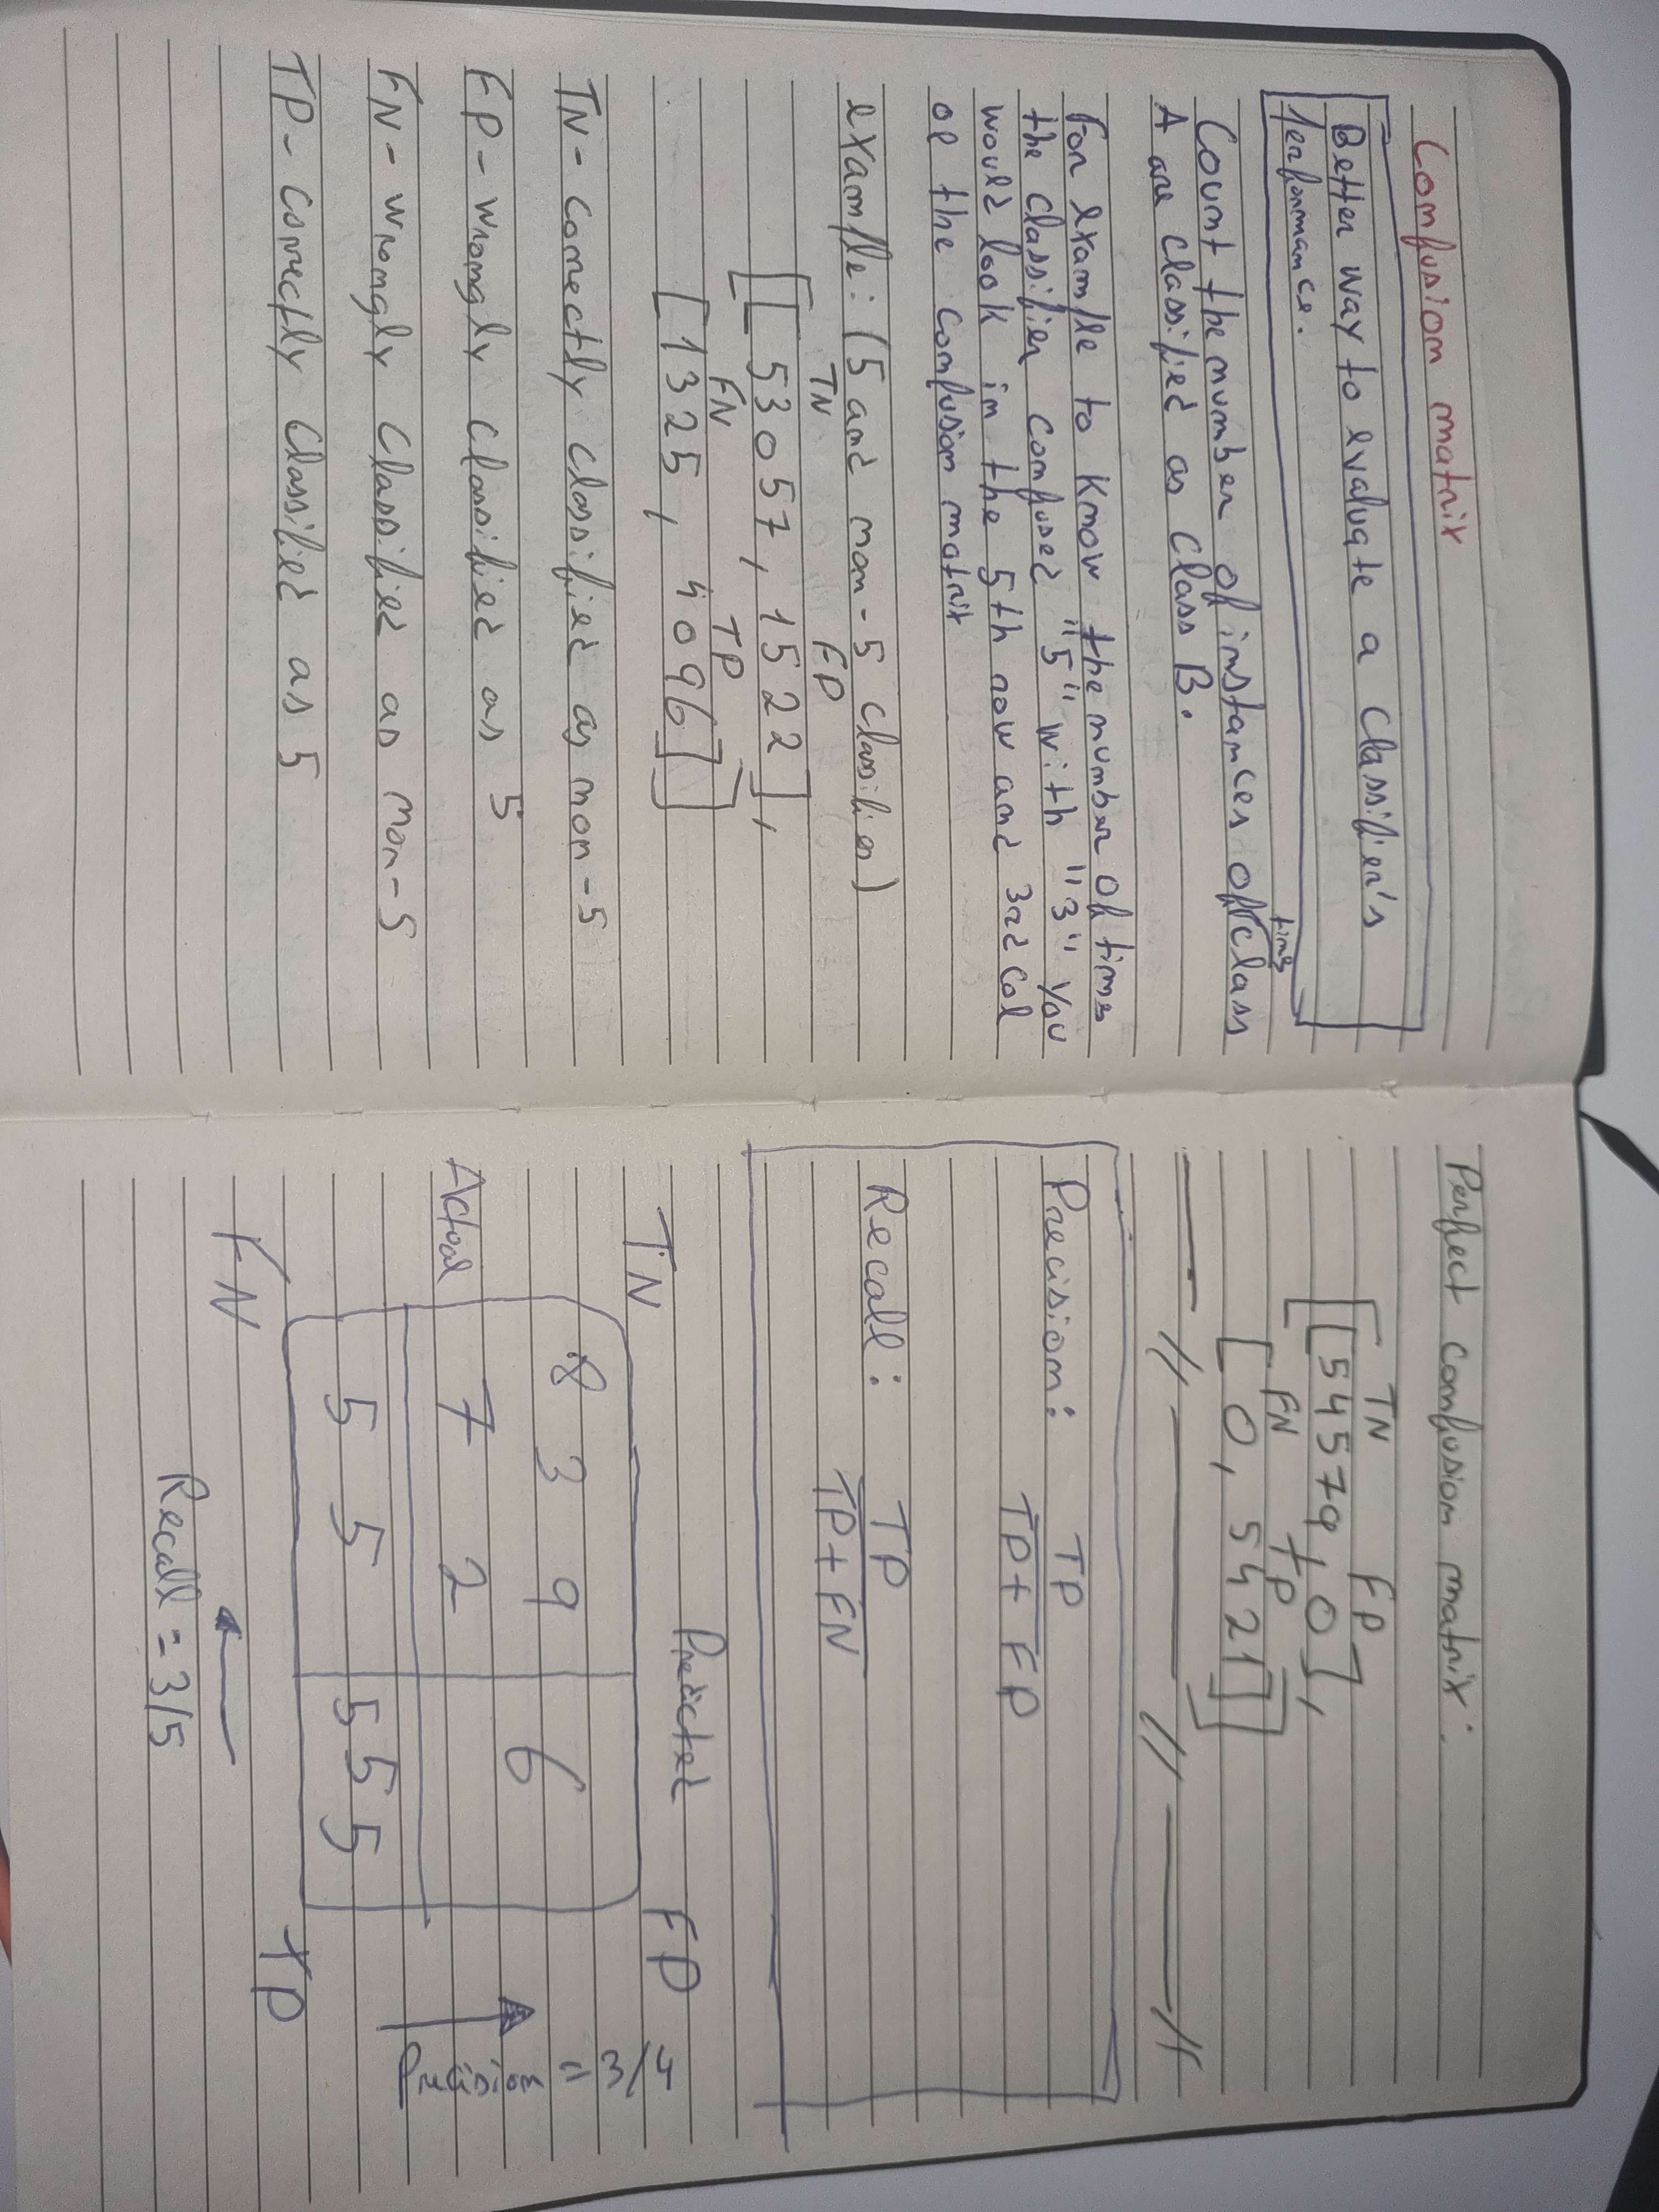 Confusion matrix
Better way to evaluate a Classifier's
performance.
times
Count the number of instances of class
A are classified as Class B.
For example to know the number of times
the classifier confused "5" with "3" you
would look in the 5th row and 3rd col
of the confusion matrix
example: (5 and non-5 classifier)
TN FP
[[53057, 1522],
FN TP
[1325, 4096]]
TN - Correctly classified as non-5
FP - Wrongly classified as 5
FN - Wrongly classified as non-5
TP - Correctly classified as 5
Perfect confusion matrix:
TN FP
[[54579, 0],
FN TP
[0, 5421]]
Precision: TP
TP + FP
Recall: TP
TP + FN
Predicted
TN FP
8 3 9 6
Actual 7 2
5 5 5 5 5
FN TP
Precision = 3/4
Recall = 3/5